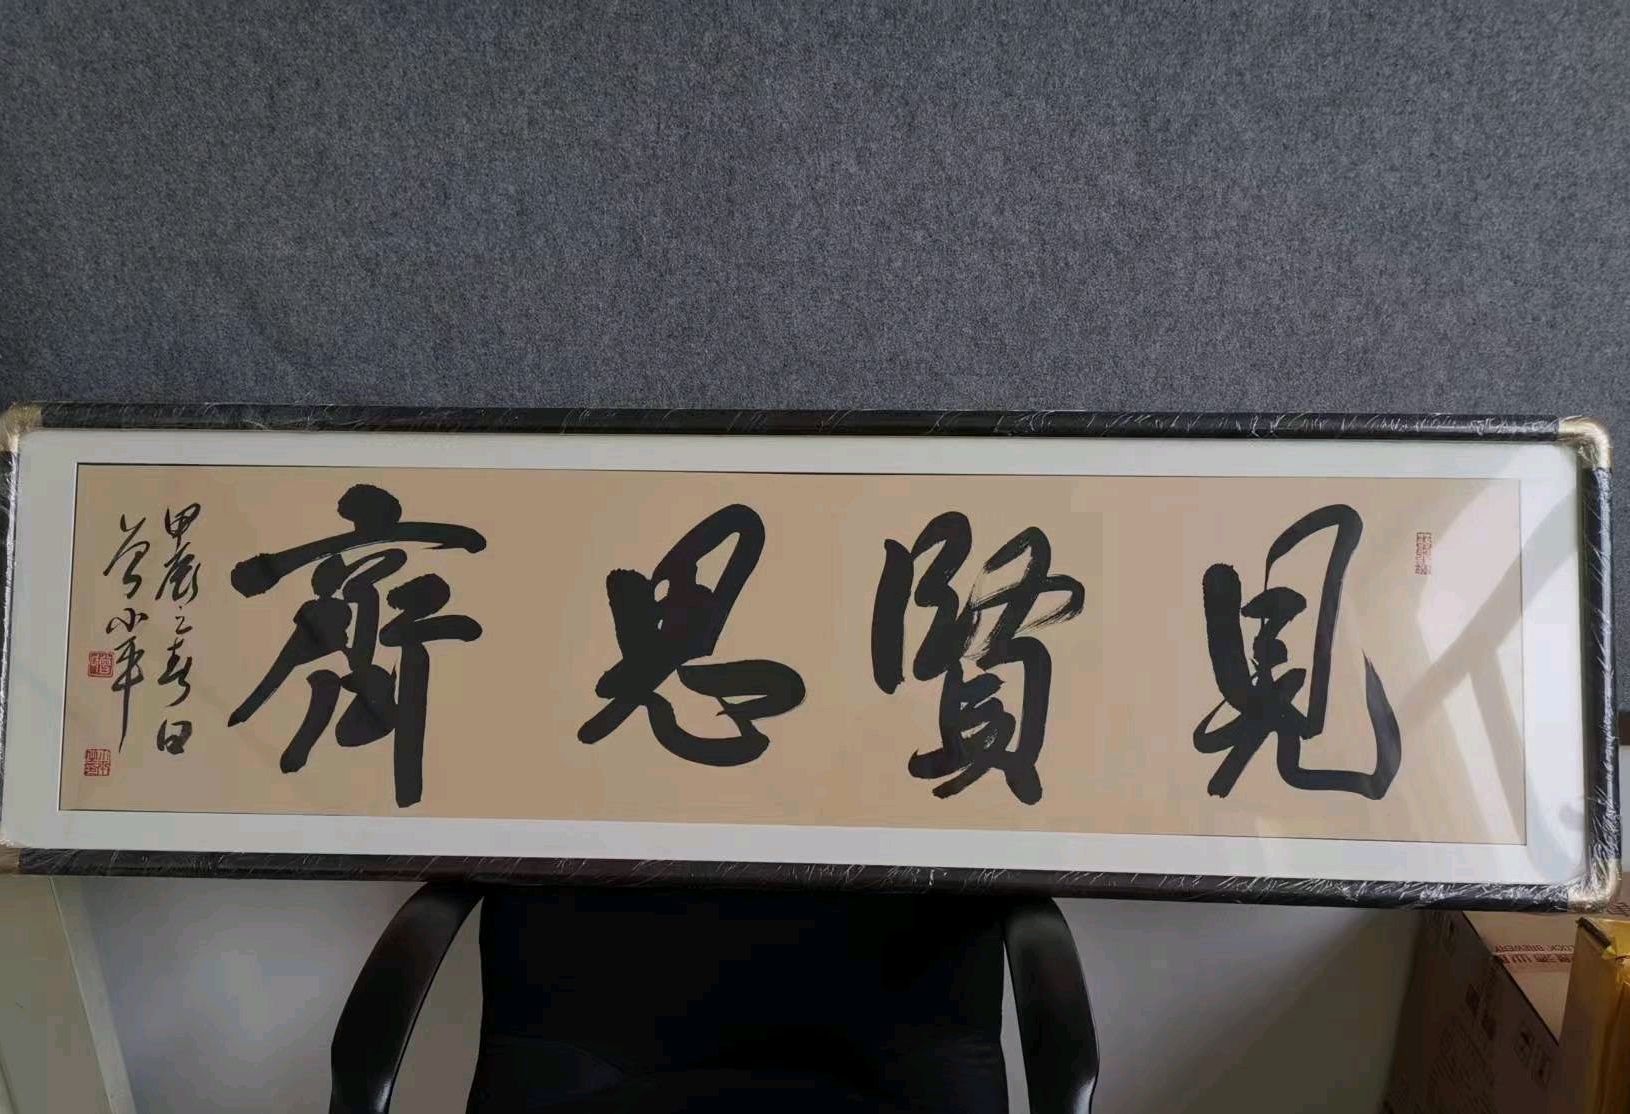 見賢思齊
甲辰之春日
曾小平